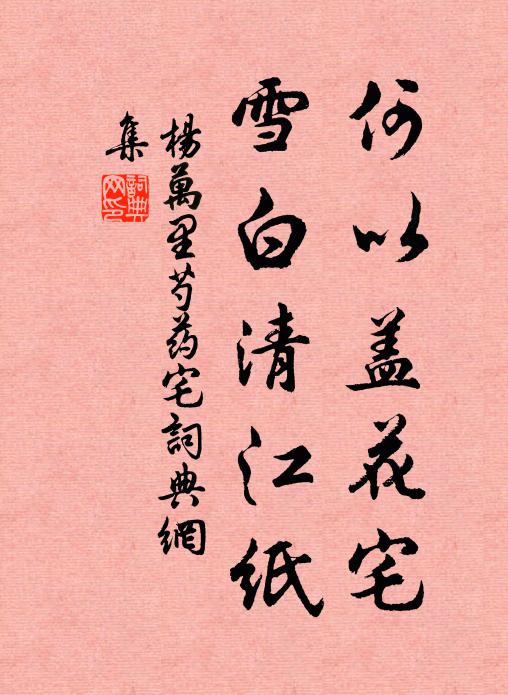 何以盖花宅
雪白清江紙
楊萬里芍药宅詞典網
集
詞典
网印